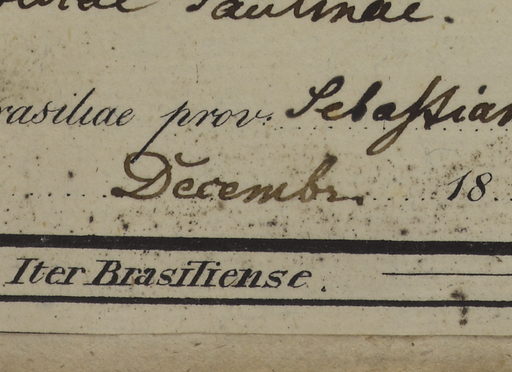 Paulinae.
Brasiliae prov. Sebastian
Decembr. 18
Iter Brasiliense.